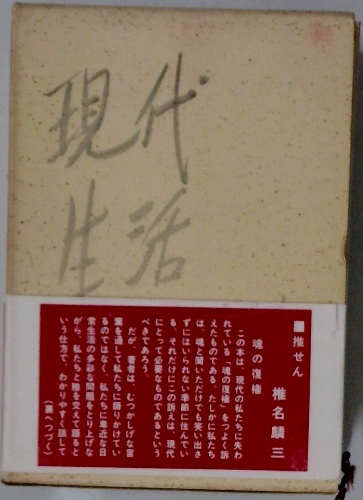 現代
生活
■推せん
椎名麟三
魂の復権
この本は、現代の私たちに失わ
れている「魂の復権」をつよく訴
えたものである。たしかに私たち
は、魂と聞いただけでも笑い出さ
ずにはいられない季節に住んでい
る。それだけにこの訴えは、現代
にとって必要なものであるという
べきであろう。
だが、著者は、むつかしげな言
葉を通して私たちに語りかけてい
るのではなく、私たちに卑近な日
常生活の多彩な問題をとり上げな
がら、私たちと膝を交えて語ると
いう仕方で、わかりやすく話して
(裏へつづく)